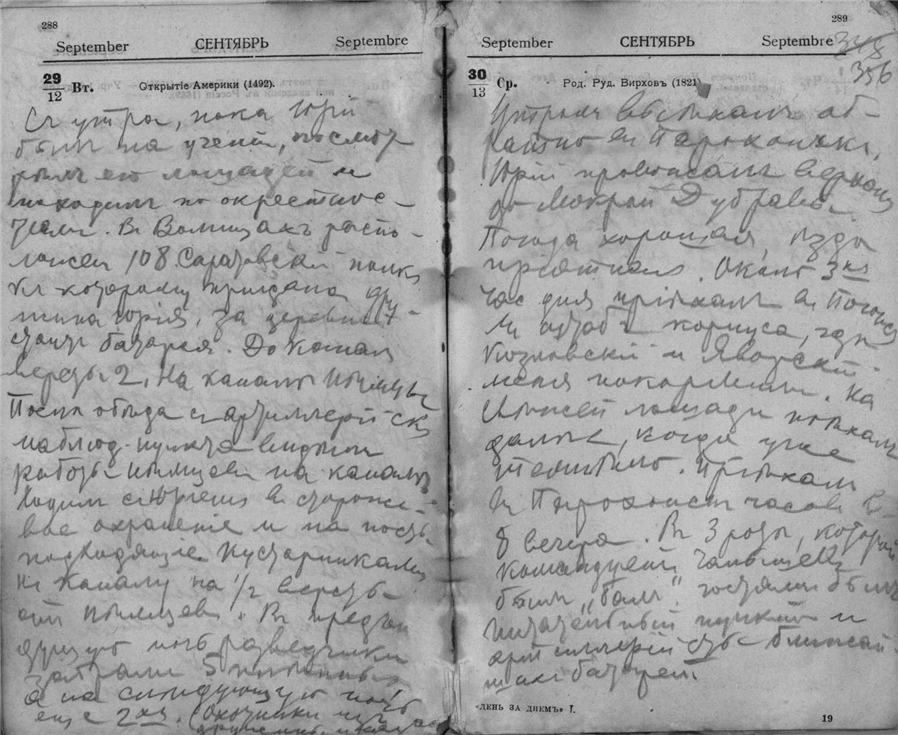 288
September СЕНТЯБРЬ Septembre
29/12 Вт. Открытіе Америки (1492).
Съ утра, пока Юрій
былъ на ученіи, посмот
рѣлъ его лошадей и
походилъ по окрестнос-
тямъ. Въ Волищахъ распо-
ложен 108 Саратовскій полкъ
къ которому придана
Юрія, за деревней
стоитъ батарея. До канала
версты 2. На каналѣ нѣмцы
Послѣ обѣда съ артиллерійск
наблюд. пункта видѣли
работы нѣмцев на каналѣ
Ходил съ Юріемъ въ стороже-
вое охраненіе и на посты
подходящіе кустарниками
къ каналу на 1/2 версты
отъ нѣмцев. Въ предъи
дущую ночь разведчики
забрали 5 плѣнныхъ
а на слѣдующую ночь
еще 2хъ. (охотники
289
September СЕНТЯБРЬ Septembre
348
356
30/13 Ср. Род. Руд. Вирховъ (1821)
Утромъ выѣхалъ об-
ратно въ Парохонскъ.
Юрій провожалъ верхомъ
до Мокрой Дубравы.
Погода хорошая, ѣзда
пріятная. Около 3хъ
час дня пріѣхалъ въ
штабъ корпуса, гдѣ
Козловскій и Яворскій
меня покормили. На
лошади поѣхалъ
дальше, когда уже
темнѣло. Пріѣхал
въ Парохонскъ часов въ
8 вечера. Въ 3 роты, которой
командуетъ
былъ „балъ". гостями были
питательный пунктъ и
артиллеристы ближай-
шихъ батарей.
«ДЕНЬ ЗА ДНЕМЪ» I.
19